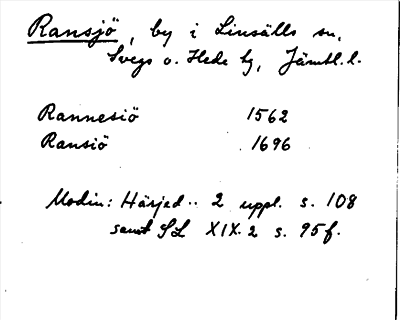 Ransjö, by i Linsälls sn,
Svegs o. Hede tg, Jämtl. l.
Rannesiö 1562
Ransiö 1696
Modin: Härjed.. 2 uppl. s. 108
samt SL XIX. 2 s. 95f.